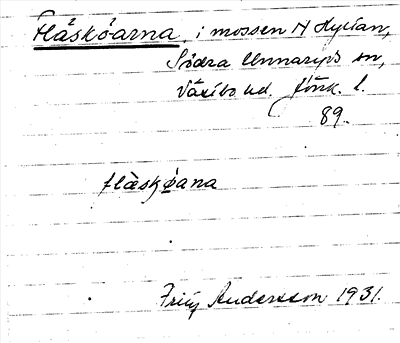 Flåsköarna, i mossen N Hyltan,
Södra Unnaryds sn,
Västbo hd. Jönk. l.
89.
flåskøana
Fritz Andersson 1931.